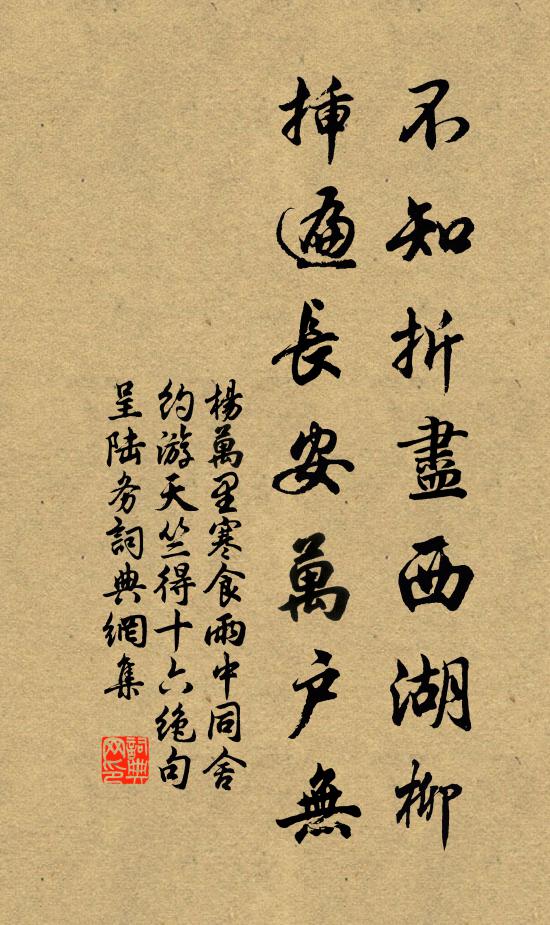 不知折盡西湖柳
插遍長安萬戶無
楊萬里寒食雨中同舍
約游天竺得十六絕句
呈陆务詞典網集
詞典
网印